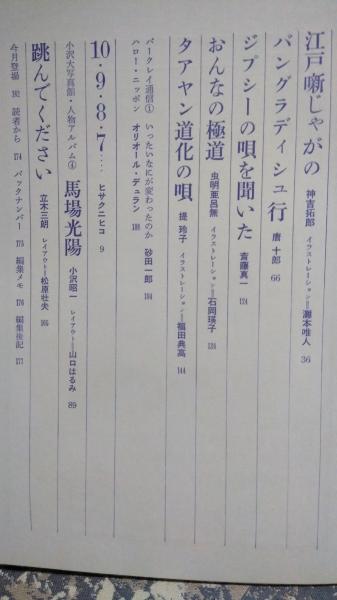 江戸噺じゃがの 神吉拓郎 イラストレーション=灘本唯人 36
バングラディシュ行 唐 十郎 66
ジプシーの唄を聞いた 斎藤真一 124
おんなの極道 虫明亜呂無 イラストレーション=石岡瑛子 134
タアヤン道化の唄 堤 玲子 イラストレーション=福田典高 144
バークレイ通信① いったいなにが変わったのか 砂田一郎 184
ハロー・ニッポン オリオール・デュラン 188
10・9・8・7‥‥ ヒサクニヒコ 9
小沢大写真館・人物アルバム④ 馬場光陽 小沢昭一 レイアウト=山口はるみ 89
跳んでください 立木三朗 レイアウト=松原壮夫 105
今月登場 192 読者から 174 バックナンバー 175 編集メモ 176 編集後記 177